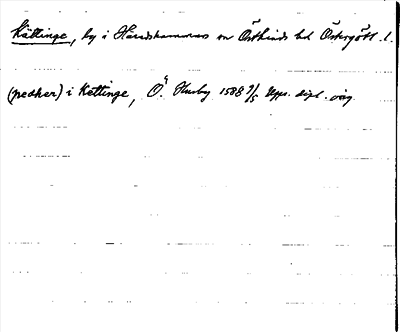 Kättinge, by i Häradshammar sn Östkinds hd Östergötl. l.
(pedher) i Kettinge, Ö. Husby 1588 9/5 Upps. dipl. orig.